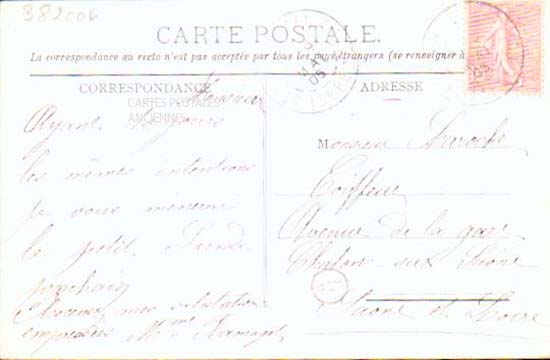 382006
CARTE POSTALE.
La correspondance au recto n'est pas acceptée par tous les pays étrangers (se renseigner à
CORRESPONDANCE
CARTES POSTALES
ANCIENNES
ADRESSE
Monsieur
Ayant toujours
les mêmes intentions
Coiffeur
je vous
Avenue de la gare
le petit
Chalon sur Saône
prochain
Saône et Loire
mes salutations
empressées Mme